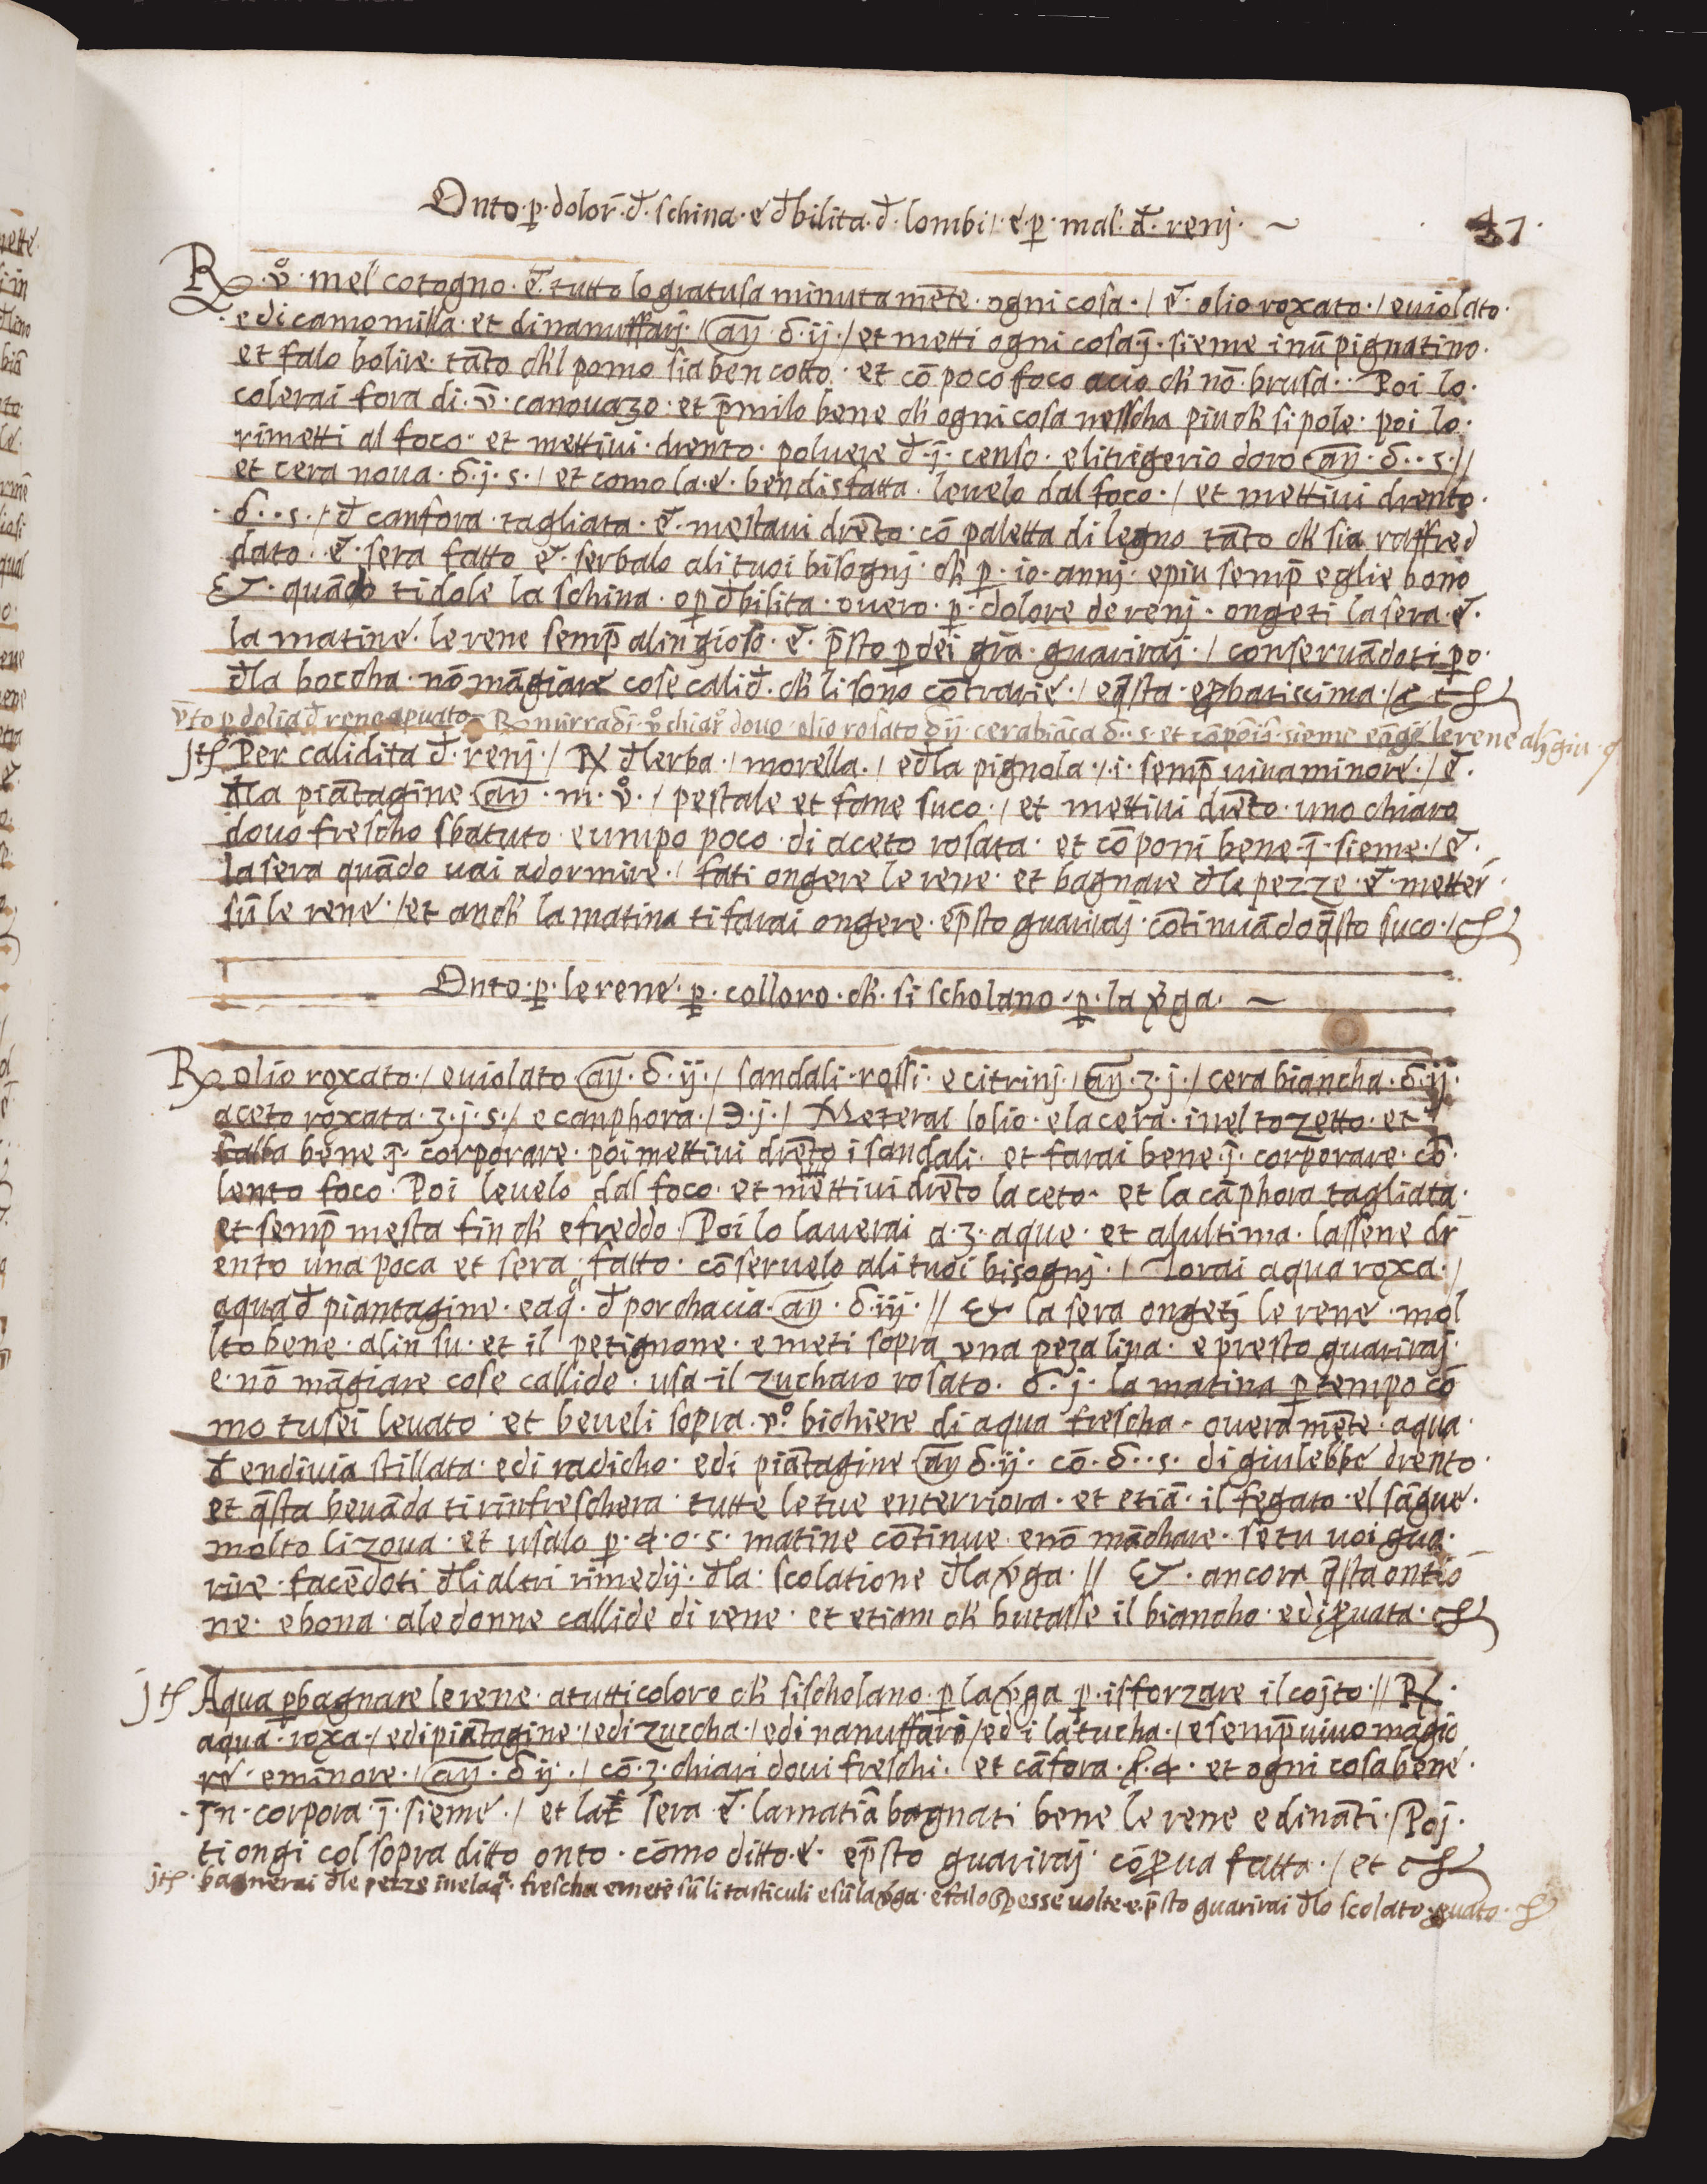 Onto·p̱·dolor̄·đ·schina·e đbilita·đ·lombi/·e·p̱·mal'·đ·renj·~
47·
R·v̊·mel cotogno·e·tutto lo gratusa minutamēte·ogni cosa·/ e·olio roxato·/ e uiolato·
e di camomilla·et di nanuffarj·/ añ·δ·ij·/ et metti ogni cosa·ī·sieme in ū pignatino·
et falo bolire·tāto ch'l pomo sia ben cotto·et cō poco foco acio ch' nō·brusa··Poi lo·
colerai fora di·v̄·canouazo·et p̄milo bene ch' ogni cosa nesscha piu ch' si pole·poi lo·
rimetti al foco·et mettiui·drento·poluere đ·ī·censo·e litrigerio doro añ·δ··s·//
et cera noua·δ·j·s·/ et como la·e·ben disfatta·leuelo dal foco·/ et mettiui drento·
·δ··s·/ đ canfora·tagliata·e·mestaui drēto·cō paletta di legno tāto ch' sia raffred
dato·e·sera fatto e·serbalo ali tuoi bisognj·ch' p̱·io·annj·e piu semp̄ eglie bono
Et·quādo ti dole la schina·o p̱ đbilita·ouero·p̱·dolore de renj·ongeti la sera·e·
la matine·le rene semp̄ alin gioso·e·p̄sto p̱ dei gr̄a·guarirai·/ conseruādoti p̱o·
đla boccha·nō māgiare cose calid̄·ch' li sono cōtrarie·/ e q̄sta·e p̱batissima·/ e t
v̄to p̱ dolia đ rene apuato R mirra δi·v̊ chiar̊ douo·olio rosato δij·cera biāca δ··s·et cāpōi ī·sieme e āgē le rene alī giu·
jtę Per calidita đ·renj·/ R đlerba·/ morella·/ e đla pignola·/·i·semp̄ uiua minore·/ e·
đla piātagine añ·m·v̊·/ pestale et fane suco·/ et mettiui drēto·uno chiaro
douo frescho sbatuto·e umpo poco·di aceto rosata·et cōponi bene·ī·sieme·/ e·
la sera quādo uai a dormire·/ fati ongere le rene·et bagnare đle pezze·e·metter̄·
sū le rene·/ et anch' la matina ti farai ongere·e p̄sto guarirai cōtinuādo q̄sto suco·/
Onto·p̱·le rene·p̱·colloro·ch'·si scholano·p̱·la v̱ga·~
R olio roxato·/ e uiolato añ·δ·ij·/ sandali·rossi·e citrinj·/ añ·ʒ·j·/ cera biancha·δ·ij·
aceto roxata·ʒ·j·s·/ e canphora·/ Э·j·/ Meterai lolio·e la cera·inel tozetto·et
falla bene ī·corporare·poi mettiui drēto i sandali·et farai bene·ī·corporare·cō·
lento foco·Poi leuelo dal foco·et mēttiui drēto laceto·et la cāphora tagliata·
et semp̄ mesta fin ch' e freddo·/ Poi lo lauerai a·3·aque·et alultima·lassene dr
ento una poca et sera·fatto·cōseruelo ali tuoi bisognj·/ Torai aqua roxa·/
aqua đ piantagine·e aq̊·đ porchacia·añ·δ·iij·// Et la sera ongetj le rene·mol
lto bene·alin su·et il petignone·e meti sopra vna peza lina·e presto guariraj·
e·nō māgiare cose callide·usa·il zucharo rosato·δ·j·la matina p̱ tempo cō
mo tu sei leuato·et beueli sopra·v̊·bichiere di aqua frescha·ouera mēte·aqua·
đ endiuia stillata·e di radicho·e di piātagine añ δ·ij·cō·δ··s·di giulebbe drento·
et q̄sta beuāda ti rinfreschera·tutte le tue enterriora·et etiā·il fegato·el sāgue·
molto li zoua·et usalo p̱·4·o·5·matine cōtinue·e nō māchare·se tu uoi gua·
rire·facēdoti đli altri rimedij·đla·scolatione đla v̱ga·// Et·ancora q̄sta ontiō
ne·e bona·ale donne callide di rene·et etiam ch' butasse il biancho·e di p̱uata·
jtę Aqua p̱ bagnare le rene·a tutti coloro ch' si scholano·p̱ la v̱ga p̱·isforzare il cojto·// R·
aqua·roxa·/ e di piātagine·/ e di zuccha·/ e di nanuffari/ e d i latucha·/ e semp̄uiuo magio
re·e minore·/ añ·δ ij·/ cō·3·chiari doui freschi·/ et cāfora··4·et ogni cosa bene·
·īn·corpora·ī·sieme·/ et la sera·e·la matīa bagnati bene le rene e dināti·/ Poj·
ti ongi col sopra ditto onto·cōmo ditto·e·e p̄sto guariraj·cō p̱ua fatta·/ et
jtę·bagnerai đle pezze inelaq̊·frescha e meti sū li tasticuli e sū la v̱ga·e falo spesse uolte·e·p̄sto guarirai đlo scolato·p̱uato·